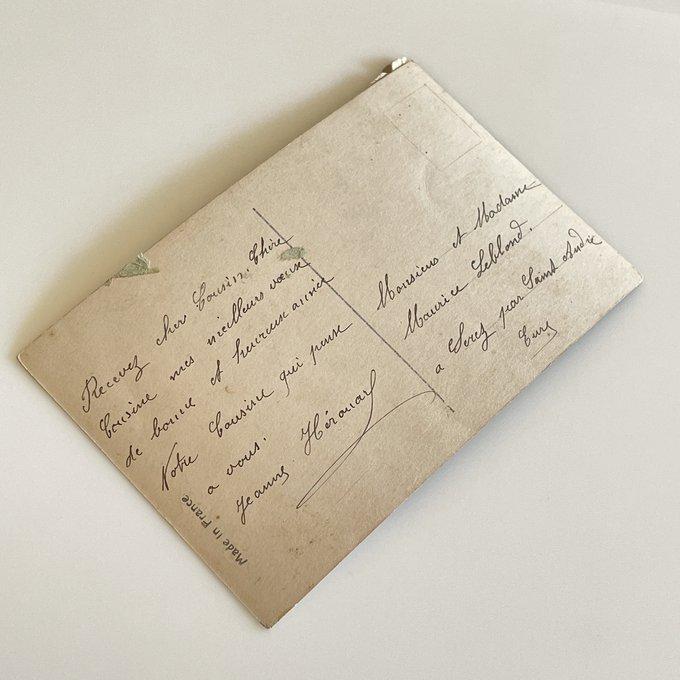 Recevez cher Cousin. Chère
Cousine mes meilleurs vœux
de bonne et heureuse année
Votre Cousine qui pense
a vous.
Jeanne Hérouard
Made in France
Monsieur et Madame
Maurice Leblond.
a Serez par Saint André
Eure